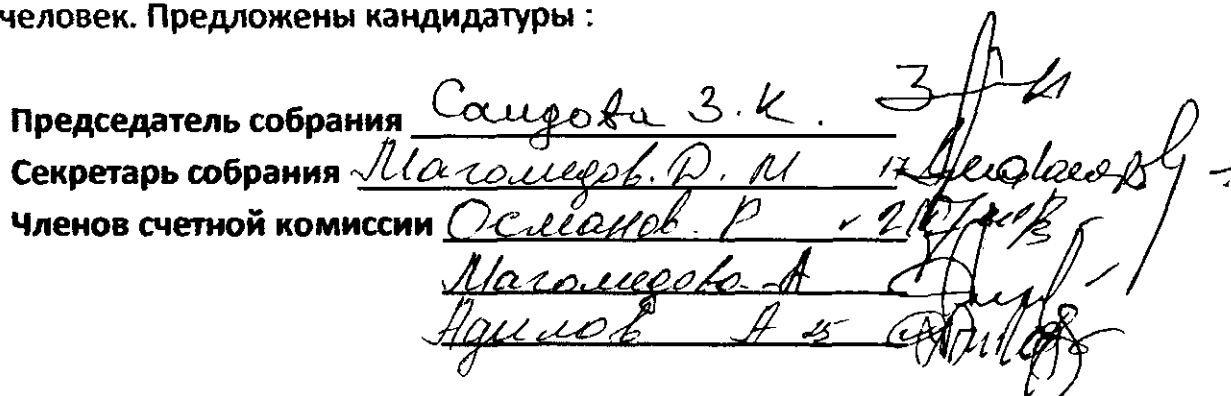 человек. Предложены кандидатуры :
Председатель собрания Саидова З.К.
Секретарь собрания Магомедов. Д. М 17
Членов счетной комиссии Османов. Р
Магомедова А
Адилов А 25